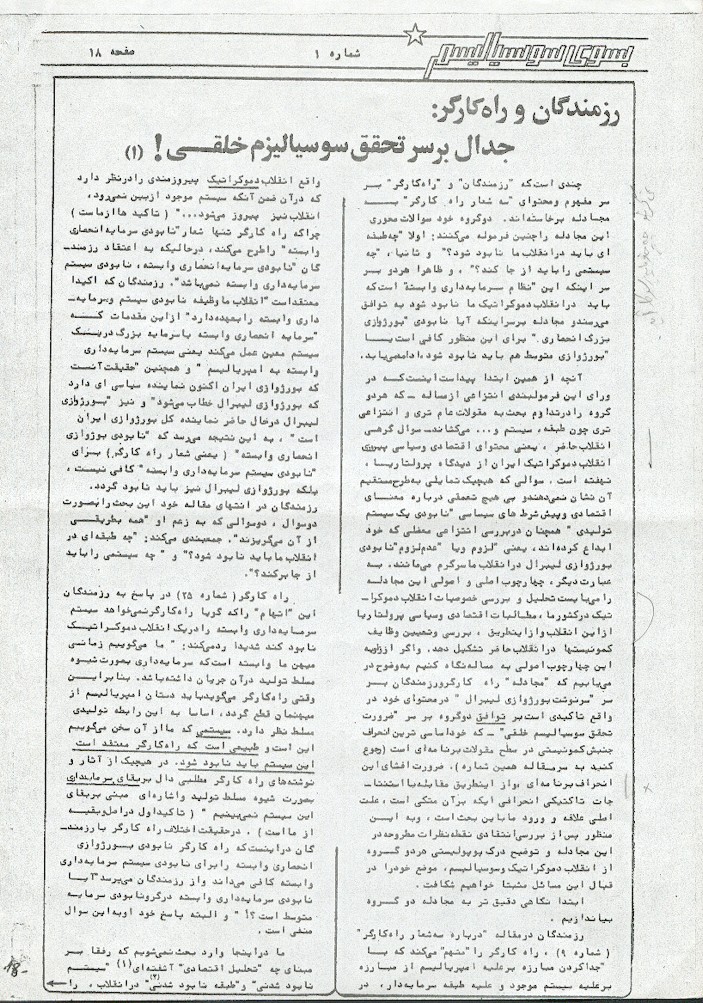 بسوی سوسیالیسم
شماره ۱
صفحه ۱۸
رزمندگان و راه‌کارگر:
جدال برسر تحقق سوسیالیزم خلقی! (۱)
چندی است که "رزمندگان" و "راه‌کارگر" بر
سر مفهوم و محتوای "سه شعار راه کارگر" به
مجادله برخاسته‌اند. دوگروه خود سوالات محوری
این مجادله را چنین فرموله می‌کنند: اولا "چه‌طبقه
ای باید در انقلاب ما نابود شود؟" و ثانیا، "چه
سیستمی را باید از جا کند؟"، و ظاهرا هردو بر
سر اینکه این "نظام سرمایه‌داری وابسته" است‌که
باید در انقلاب دموکراتیک ما نابود شود به توافق
می‌رسند و مجادله برسر اینکه آیا نابودی "بورژوازی
بزرگ انحصاری" برای این منظور کافی است یا
"بورژوازی متوسط هم باید نابود شود"، ادامه‌می‌یابد.
آنچه از همین ابتدا پیداست اینست‌که در
ورای این فرمولبندی انتزاعی از مساله ـ که هردو
گروه را در تداوم بحث به مقولات عام تری و انتزاعی
تری چون طبقه، سیستم و... می‌کشاند ـ سوال گرهی
انقلاب حاضر، یعنی محتوای اقتصادی و سیاسی پیروزی
انقلاب دموکراتیک ایران از دیدگاه پرولتاریا،
نهفته است. سوالی که هیچیک تمایلی به‌طرح مستقیم
آن نشان نمی‌دهند و بی هیچ تعمقی درباره معنای
اقتصادی و پیش‌شرط های سیاسی "نابودی یک سیستم
تولیدی" همچنان در بررسی انتزاعی معضلی که خود
ابداع کرده‌اند، یعنی "لزوم ویا "عدم‌لزوم" نابودی
بورژوازی لیبرال در انقلاب ما سرگرم می‌مانند. به
عبارت دیگر، چهارچوب اصلی و اصولی این مجادله
را می‌بایست تحلیل و بررسی خصوصیات انقلاب دموکرا ـ
تیک درکشور ما، مطالبات اقتصادی و سیاسی پرولتاریا
از این انقلاب و از اینطریق، بررسی و تعیین وظایف
کمونیستها در انقلاب حاضر تشکیل دهد. و اگر از زاویه
این چهارچوب اصولی به مساله نگاه کنیم به‌وضوح در
می‌یابیم که "مجادله" راه کارگر و رزمندگان بر
سر "سرنوشت بورژوازی لیبرال" در محتوای خود در
واقع تاکیدی است بر توافق دوگروه بر سر "ضرورت
تحقق سوسیالیسم خلقی" ـ که خود اساسی ترین انحراف
جنبش کمونیستی در سطح مقولات برنامه‌ای است (رجوع
کنید به سرمقاله همین شماره). ضرورت افشای این
انحراف برنامه‌ای، و از اینطریق مقابله با استنتا ـ
جات تاکتیکی انحرافی ایکه برآن متکی است، علت
اصلی علاقه و ورود ما باین بحث است، و به این
منظور پس از بررسی انتقادی نقطه‌نظرات مطروحه در
این مجادله و توضیح درک پوپولیستی هردو گروه
از انقلاب دموکراتیک و سوسیالیسم، موضع خود را در
قبال این مسائل مثبتا خواهیم شکافت.
ابتدا نگاهی دقیق تر به مجادله دو گروه
بیاندازیم.
رزمندگان در مقاله "درباره سه‌شعار راه‌کارگر"
(شماره ۹)، راه کارگر را "متهم" می‌کند که با
"جدا کردن مبارزه برعلیه امپریالیسم از مبارزه
برعلیه سیستم موجود و علیه طبقه سرمایه‌دار، در
واقع انقلاب دموکراتیک پیروزمندی را در نظر دارد
که در آن ضمن آنکه سیستم موجود از بین نمی‌رود،
انقلاب نیز پیروز می‌شود..." (تاکید ها از ماست)
چرا که راه کارگر تنها شعار "نابودی سرمایه انحصاری
وابسته" را طرح می‌کند، در حالیکه به اعتقاد رزمند ـ
گان "نابودی سرمایه انحصاری وابسته، نابودی سیستم
سرمایه‌داری وابسته نمی‌باشد". رزمندگان که اکیدا
معتقد است "انقلاب ما وظیفه نابودی سیستم سرمایه ـ
داری وابسته را بعهده دارد" از این مقدمات که
"سرمایه انحصاری وابسته با سرمایه بزرگ در یک
سیستم معین عمل می‌کند یعنی سیستم سرمایه‌داری
وابسته به امپریالیسم" و همچنین "حقیقت آنست
که بورژوازی ایران اکنون نماینده سیاسی ای دارد
که بورژوازی لیبرال خطاب می‌شود" و نیز "بورژوازی
لیبرال در حال حاضر نماینده کل بورژوازی ایران
است"، به این نتیجه می‌رسد که "نابودی بورژوازی
انحصاری وابسته" (یعنی شعار راه کارگر) برای
"نابودی سیستم سرمایه‌داری وابسته" کافی نیست،
بلکه بورژوازی لیبرال نیز باید نابود گردد.
رزمندگان در انتهای مقاله خود این بحث را بصورت
دو سوال، دو سوالی که به زعم او "همه بطریقی
از آن می‌گریزند"، جمعبندی می‌کند: "چه طبقه‌ای در
انقلاب ما باید نابود شود؟" و "چه سیستمی را باید
از جا برکند؟".
راه کارگر (شماره ۲۵) در پاسخ به رزمندگان
این "اتهام" را که گویا راه کارگر نمی‌خواهد سیستم
سرمایه‌داری وابسته را در یک انقلاب دموکراتیک
نابود کند شدیدا رد می‌کند: "ما می‌گوییم زمانی
میهن ما وابسته است که سرمایه‌داری بصورت شیوه
مسلط تولید در آن جریان داشته باشد. بنابراین
وقتی راه‌کارگر می‌گوید باید دستان امپریالیسم از
میهنمان قطع گردد، اساسا به این رابطه تولیدی
مسلط نظر دارد. سیستمی که ما از آن سخن می‌گوییم
این است و طبیعی است که راه‌کارگر معتقد است
این سیستم باید نابود شود. در هیچیک از آثار و
نوشته‌های راه کارگر مطلبی دال بربقای سرمایه‌داری
بصورت شیوه مسلط تولید و اشاره‌ای مبنی بربقای
این سیستم نمی‌بینیم" (تاکید اول در اصل و بقیه
از ما است). در حقیقت اختلاف راه کارگر با رزمند ـ
گان در اینست‌که راه کارگر نابودی بورژوازی
انحصاری وابسته را برای نابودی سیستم سرمایه‌داری
وابسته کافی می‌داند و از رزمندگان می‌پرسد "آیا
نابودی سرمایه‌داری وابسته درگرو نابودی سرمایه
متوسط است؟!" و البته پاسخ خود او به این سوال
منفی است.
ما در اینجا وارد بحث نمی‌شویم که رفقا بر
مبنای چه "تحلیل اقتصادی" آشفته‌ای (۱) "سیستم
نابود شدنی" و "طبقه نابود شدنی" (۲) در انقلاب، را
۱۸-